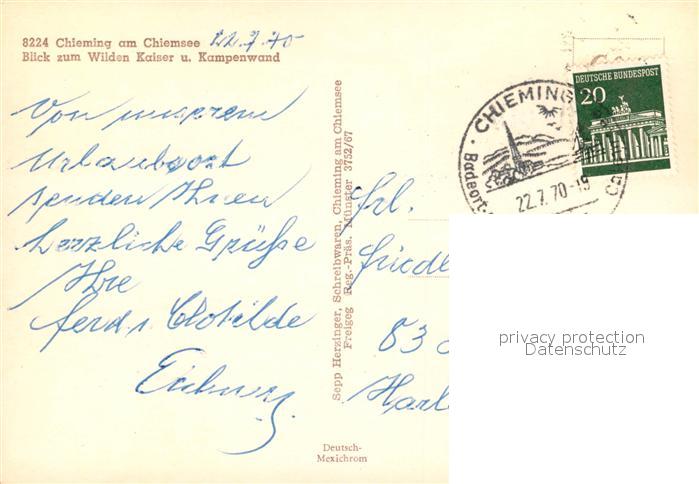 8224 Chieming am Chiemsee 22.7.70
Blick zum Wilden Kaiser u. Kampenwand
Von unserem
Urlaubsort
senden Ihnen
herzliche Grüße
Ihre
Ferd. u. Clotilde
Sepp Herzinger, Schreibwaren, Chieming am Chiemsee
Freigeg. Reg.-Präs. Münster 3752/67
DEUTSCHE BUNDESPOST
20
CHIEMING
Badeort
22.7.70-19
Frl.
Friedl
83
Harl
privacy protection
Datenschutz
Deutsch-
Mexichrom